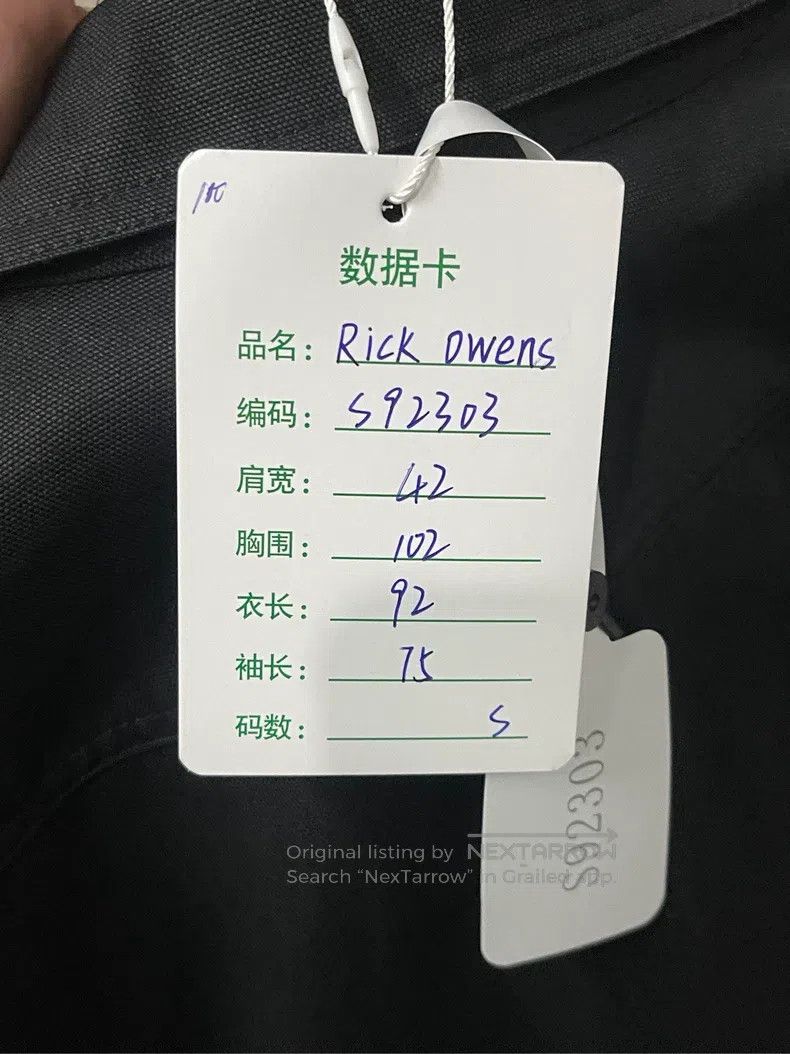 数据卡
品名: Rick Owens
编码: S92303
肩宽: 42
胸围: 102
衣长: 92
袖长: 75
码数: S
S92303
Original listing by NEXTARROW
Search “NexTarrow” in Grailed app.